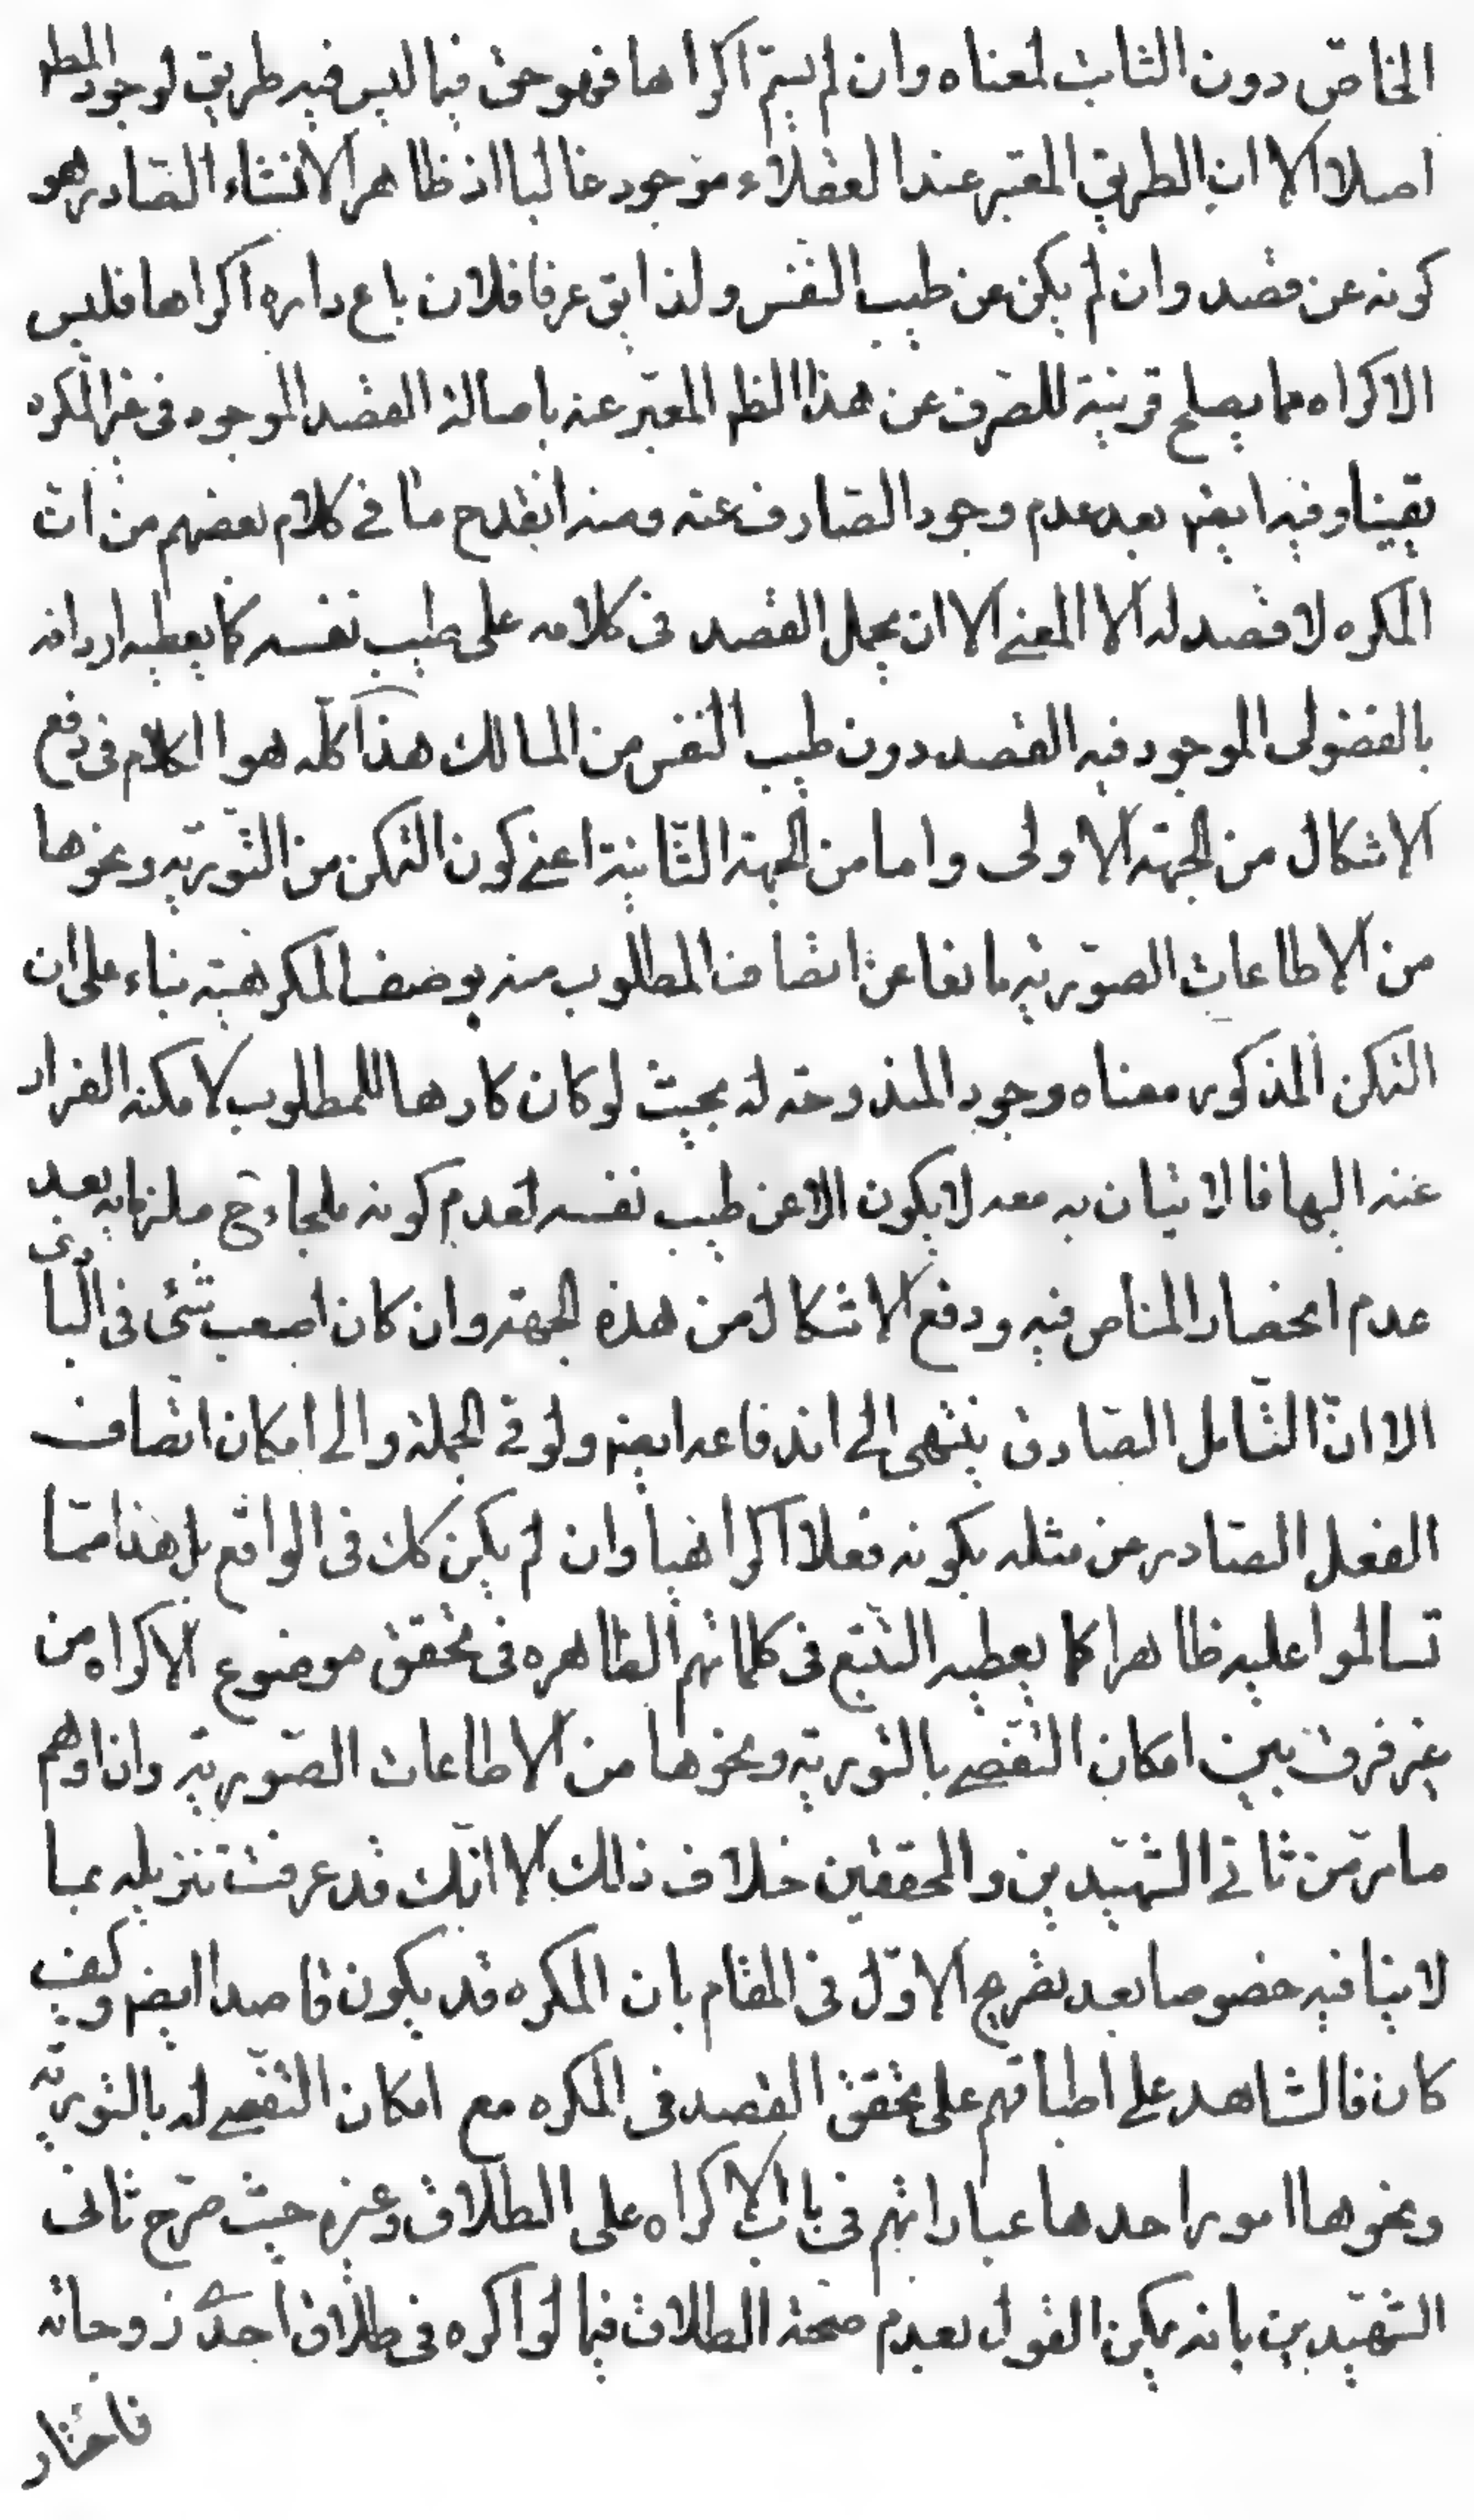 الخاصّ دون الثابت لمعناه وان لم يسمّ اكراها فهو حق فيما ليس فيه طريق لوجود المط
اصلا الا ان الطريق المعتبر عند العقلاء موجود غالبا اذ ظاهر الانشاء الصّادر هو
كونه عن قصد وان لم يكن عن طيب النفس ولذا يق عرفا فلان باع داره اكراها فليس
الاكراه مما يصلح قرينة للصّرف عن هذا الظم المعبّر عنه باصالة القصد الموجوده فى غير المكره
يقينا وفيه ايضم بعد عدم وجود الصّارف عنه ومنه انقدح ما فے كلام بعضهم من ان
المكره لا قصد له الا المعنے الا ان يحمل القصد فى كلامه على طيب نفسه كما يعطيه اردافه
بالفضولى الموجود فيه القصد دون طيب النفس من المالك هذا كلّه هو الكلام فى دفع
الاشكال من الجهة الاولى واما من الجهة الثّانية اعنے كون التمكن من التّوريّه ونحوها
من الاطاعات الصّوريّه مانعا عن اتصاف المطلوب منه بوصف المكرهيّه بناء على ان
التمكن المذكور معناه وجود المندوحة له بحيث لو كان كارها للمطلوب لامكنه الفرار
عنه اليها فالاتيان به معه لا يكون الا عن طيب نفسه لعدم كونه ملجاء ح ملزما به بعد
عدم انحصار المناص فيه ودفع الاشكال من هذه الجهة وان كان اصعب شئ فى البا دى
الا انّ التّامل الصّادق ينتهى الے اندفاعه ايضم ولو فے الجملة والى امكان اتصاف
الفعل الصّادر عن مثله بكونه فعلا اكراهيا وان لم يكن كك فى الواقع بل هذا ممّا
تسالموا عليه ظاهرا كما يعطيه التتبع فى كلماتهم الظاهره فى تحقق موضوع الاكراه من
غير فرق بين امكان التّفصّے بالتوريّه ونحوها من الاطاعات الصّوريّه وان اوهم
ما مرّ من ثانے الشّهيدين والمحققين خلاف ذلك الا انّك قد عرفت تنزيله بما
لا ينافيه خصوصا بعد تصريح الاوّل فى المقام بان المكره قد يكون قاصدا ايضم وكيف
كان فالشاهد علے اطباقهم على تحقق القصد فى المكره مع امكان التفصّے له بالتوريّه
ونحوها امور احدها عباراتهم فى باب الاكراه على الطلاق وغيره حيث صرّح ثانى
الشّهيدين بانه يمكن القول بعدم صحّة الطلاق فيما لو اكره فى طلاق احدے زوجاته
فاختار